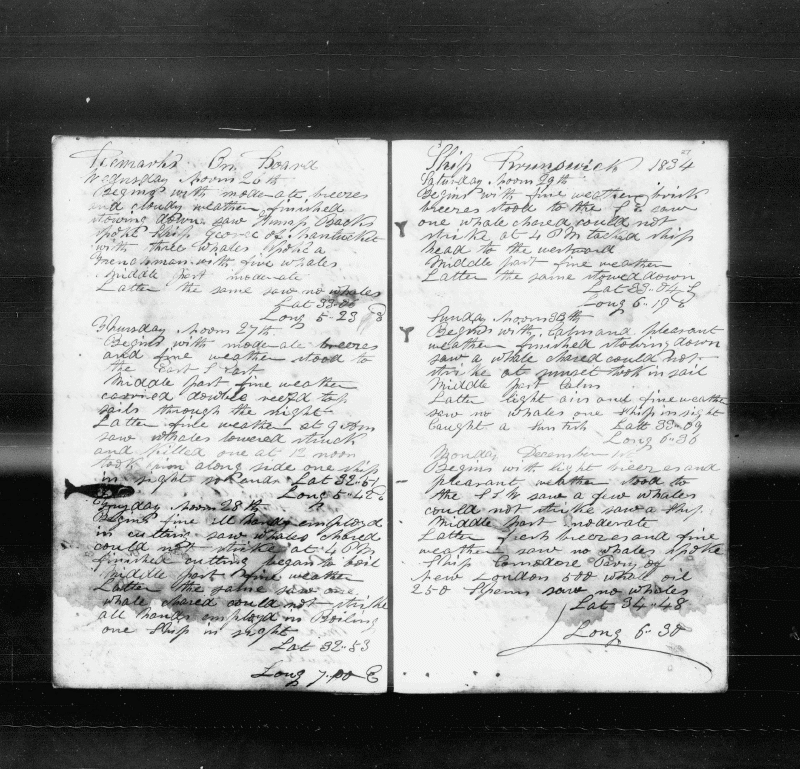 Remarks On Board
Wednesday Noon 26th
Begins with moderate breezes
and cloudy weather finished
stowing down saw Hump Backs
spoke Ship George of Nantucket
with three whales spoke a
Frenchman with five whales
Middle part moderate
Latter the same saw no whales
Lat 33-30
Long 5-23 E
Thursday Noon 27th
Begins with moderate breezes
and fine weather stood to
the East S East
Middle part fine weather
carried double reefd top
sails through the night
Latter fine weather at 9 oom
saw whales lowered struck
and killed one at 12 noon
took him along side one ship
in sight Lat 32-51
Long 5-42 E
Friday Noon 28th
Begins fine all hands employd
in cutting saw whales chared
could not strike at 4 PM
finished cutting began to boil
Middle part fine weather
Latter the same saw one
whale chared could not strike
all hands employd in Boiling
one Ship in sight
Lat 32-53
Long 7-00 E
Ship Brunswick 1834
Saturday Noon 29th
Begins with fine weather brisk
breezes stood to the S E saw
one whale chared could not
strike at 4 PM tacked ship
head to the westward
Middle part fine weather
Latter the same stowed down
Lat 33-04 S
Long 6-19 E
Sunday Noon 30th
Begins with calm and pleasant
weather finished stowing down
saw a whale chared could not
strike at sunset took in sail
Middle part calm
Latter light airs and fine weather
saw no whales one ship in sight
Caught a sun fish Latt 33-09
Long 6-36
Monday December 1st
Begins with light breezes and
pleasant weather stood to
the S S W saw a few whales
could not strike saw a ship
Middle part moderate
Latter fresh breezes and fine
weather saw no whales spoke
Ship Comodore Perry of
New London 500 whale oil
250 Sperm saw no whales
Lat 34-48
Long 6-30